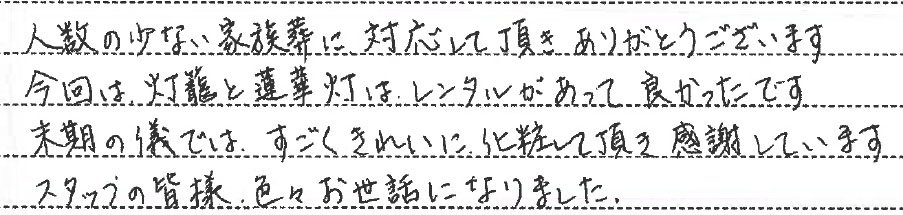 人数の少ない家族葬に対応して頂きありがとうございます
今回は、灯籠と蓮華灯は、レンタルがあって良かったです
末期の儀では、すごくきれいに、化粧して頂き感謝しています
スタッフの皆様、色々お世話になりました。